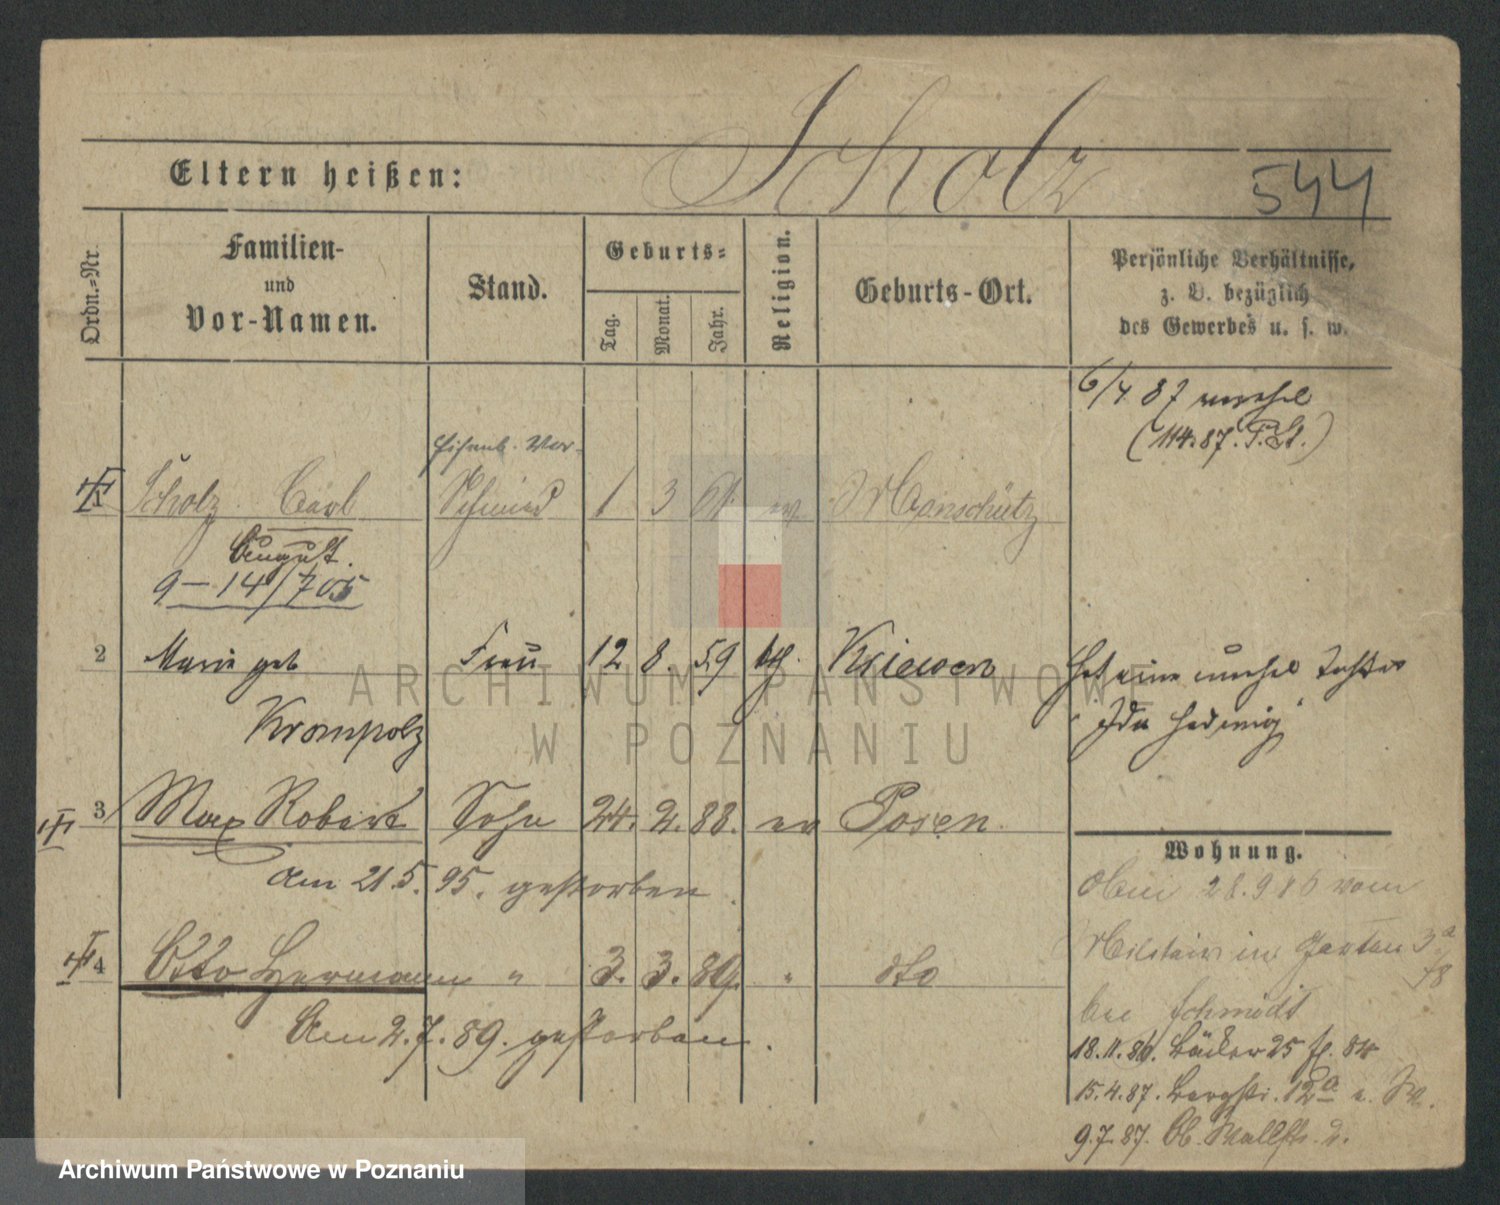 Scholz
Eltern heißen:
544
Ordn.-Nr.
Familien-
und
Vor-Namen.
Stand.
Geburts-
Tag.
Monat.
Jahr.
Religion.
Geburts-Ort.
Persönliche Verhältnisse,
z. B. bezüglich
des Gewerbes u. s. w.
6/4 87
(114.87. P.St.)
Eisenb. Vor-
1 Scholz Carl Schmied 1 3 61. Manschütz
August.
9-14/705
2 Marie geb Frau 12 8. 59 kth. Kriewen
Krompolz
Hat eine unehel Tochter
Ida Hedwig
3 Max Robert Sohn 24. 2. 88. ev Posen
am 21 5. 95. gestorben
4 Otto Hermann " 3. 3. 89. " dto
Am 2. 7. 89. gestorben.
Wohnung.
28.9 86 vom
Militair in Garten 3a
bei Schmidt
18.11.86. Bäcker 25
15.4.87. Bergstr. 12a
9.7.87. Ob. Wallstr. 2.
ARCHIWUM PAŃSTWOWE
W POZNANIU
Archiwum Państwowe w Poznaniu